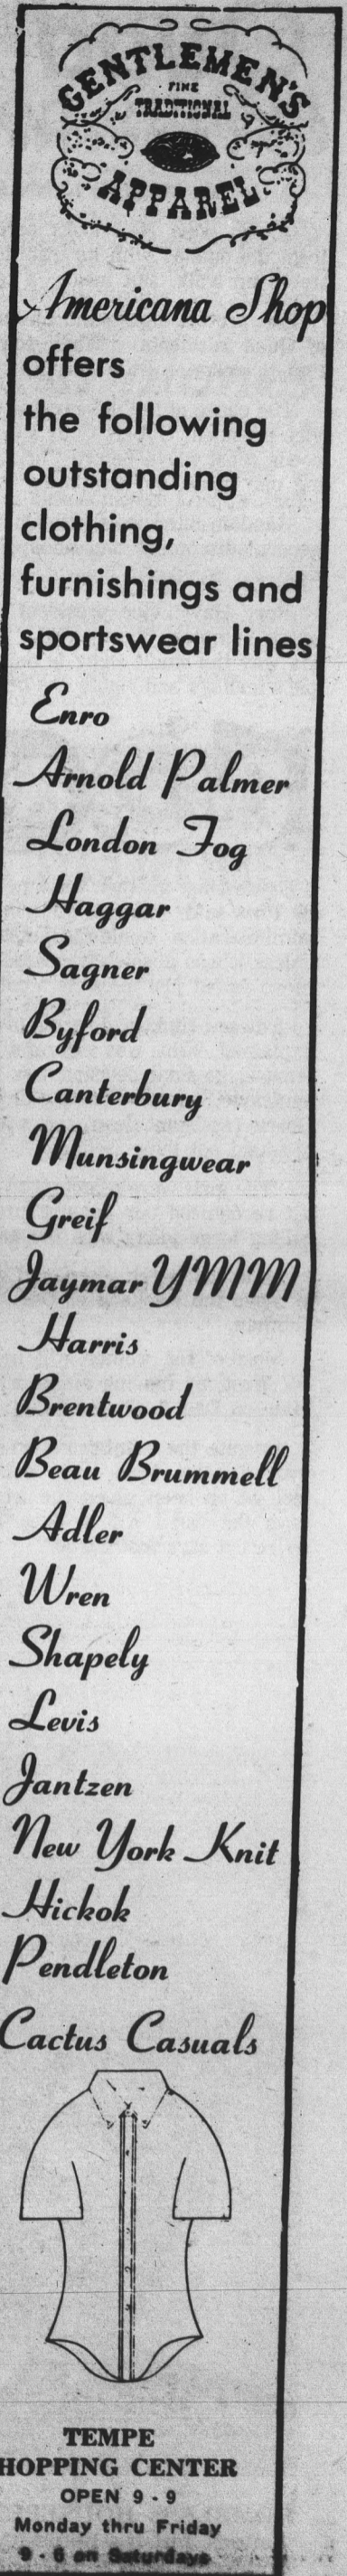 GENTLEMEN'S
FINE
TRADITIONAL
APPAREL
Americana Shop
offers
the following
outstanding
clothing,
furnishings and
sportswear lines
Enro
Arnold Palmer
London Fog
Haggar
Sagner
Byford
Canterbury
Munsingwear
Greif
Jaymar YMM
Harris
Brentwood
Beau Brummell
Adler
Wren
Shapely
Levis
Jantzen
New York Knit
Hickok
Pendleton
Cactus Casuals
TEMPE
HOPPING CENTER
OPEN 9 - 9
Monday thru Friday
9 - 6 on Saturdays